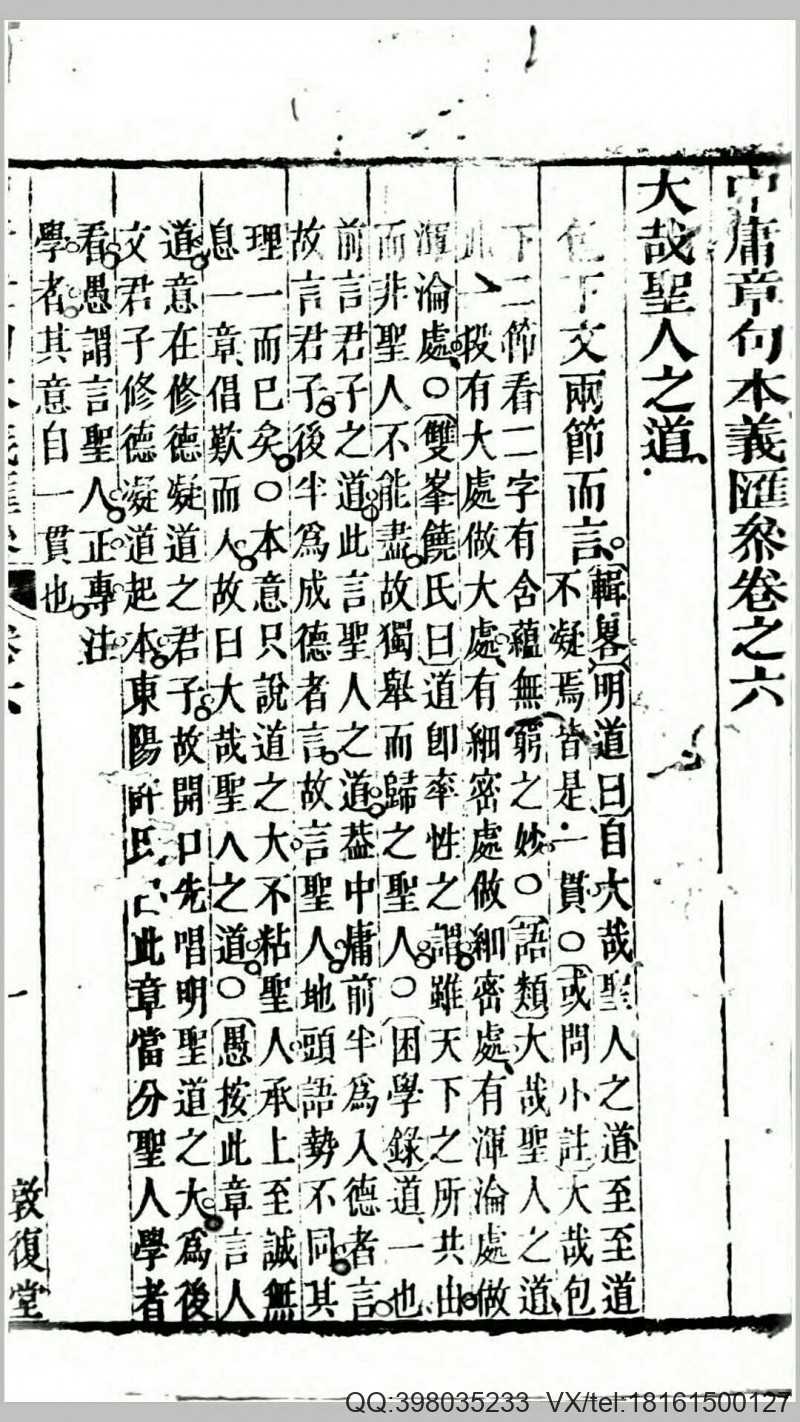 中庸章句本義匯參卷之六
大哉聖人之道
包下文兩節而言
輯畧明道曰自大哉聖人之道至至道
不凝焉皆是一貫○或問小註大哉包
下二節看二字有含蘊無窮之妙○語類大哉聖人之道
此一段有大處做大處有細密處做細密處有渾淪處做
渾淪處○雙峯饒氏曰道即率性之謂雖天下之所共由
而非聖人不能盡故獨舉而歸之聖人○困學錄道一也
前言君子之道此言聖人之道葢中庸前半為入德者言
故言君子後半為成德者言故言聖人地頭語勢不同其
理一而已矣○本意只說道之大不粘聖人承上至誠無
息一章倡歎而人故曰大哉聖人之道○愚按此章言人
道意在修德凝道之君子故開口先唱明聖道之大為後
文君子修德凝道起本東陽許氏曰此章當分聖人學者
看愚謂言聖人正專注
學者其意自一貫也
卷六
一
敦復堂
QQ:398035233 VX/tel:18161500127